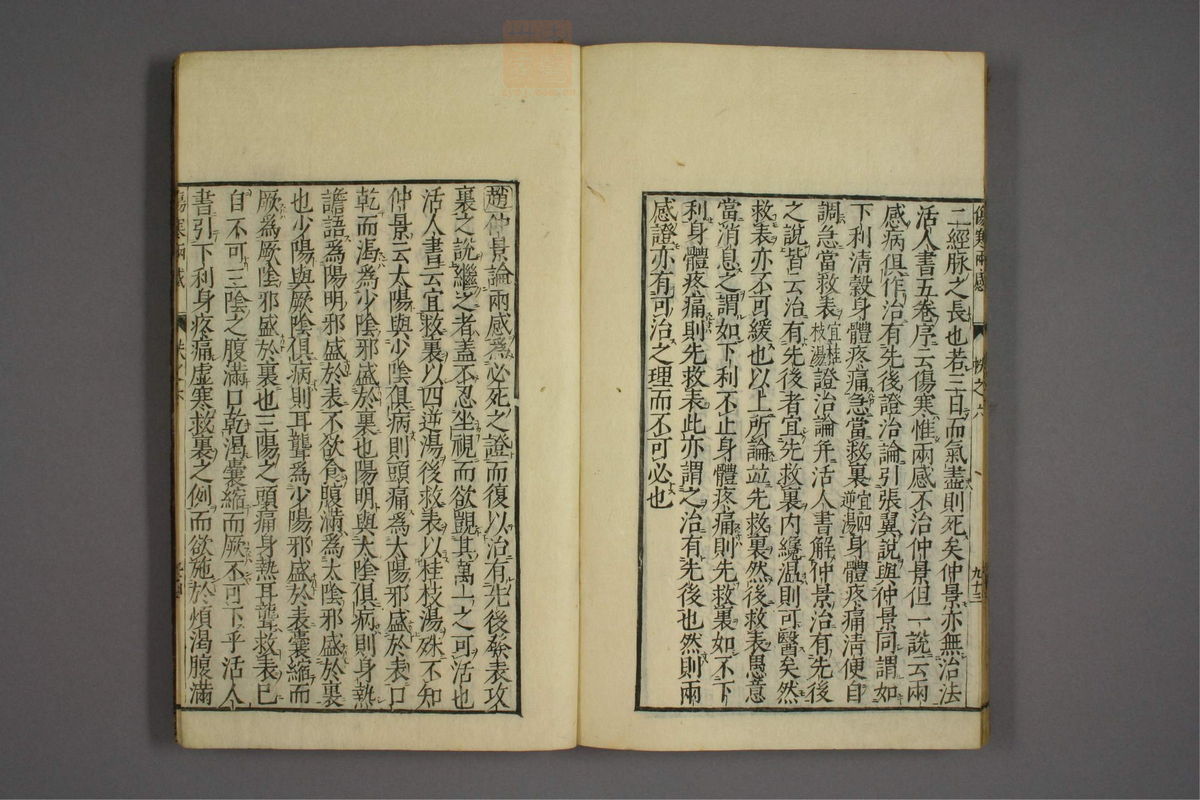 二經脉之長也若三日而氣盡則死矣仲景亦無治法
活人書五卷序云傷寒惟兩感不治仲景但一說云兩
感病俱作治有先後證治論引張翼說與仲景同謂如
下利清穀身體疼痛急當救裏宜四逆湯身體疼痛清便自
調急當救表宜桂枝湯證治論并活人書解仲景治有先後
之說皆云治有先後者宜先救裏内纔温則可醫矣然
救表亦不可緩也以上所論並先救裏然後救表愚意
當消息之謂如下利不止身體疼痛則先救裏如不下
利身體疼痛則先救表此亦謂之治有先後也然則兩
感證亦有可治之理而不可必也
趙仲景論兩感爲必死之證而復以治有先後發表攻
裏之說繼之者蓋不忍坐視而欲覬其萬一之可活也
活人書云宜救裏以四逆湯後救表以桂枝湯殊不知
仲景云太陽與少陰俱病則頭痛爲太陽邪盛於表口
乾而渴爲少陰邪盛於裏也陽明與太陰俱病則身熱
譫語爲陽明邪盛於表不欲食腹滿爲太陰邪盛於裏
也少陽與厥陰俱病則耳聾爲少陽邪盛於表囊縮而
厥爲厥陰邪盛於裏也三陽之頭痛身熱耳聾救表已
自不可三陰之腹滿口乾渴囊縮而厥不可下乎活人
書引下利身疼痛虛寒救裏之例而欲施於煩渴腹滿
傷寒兩感